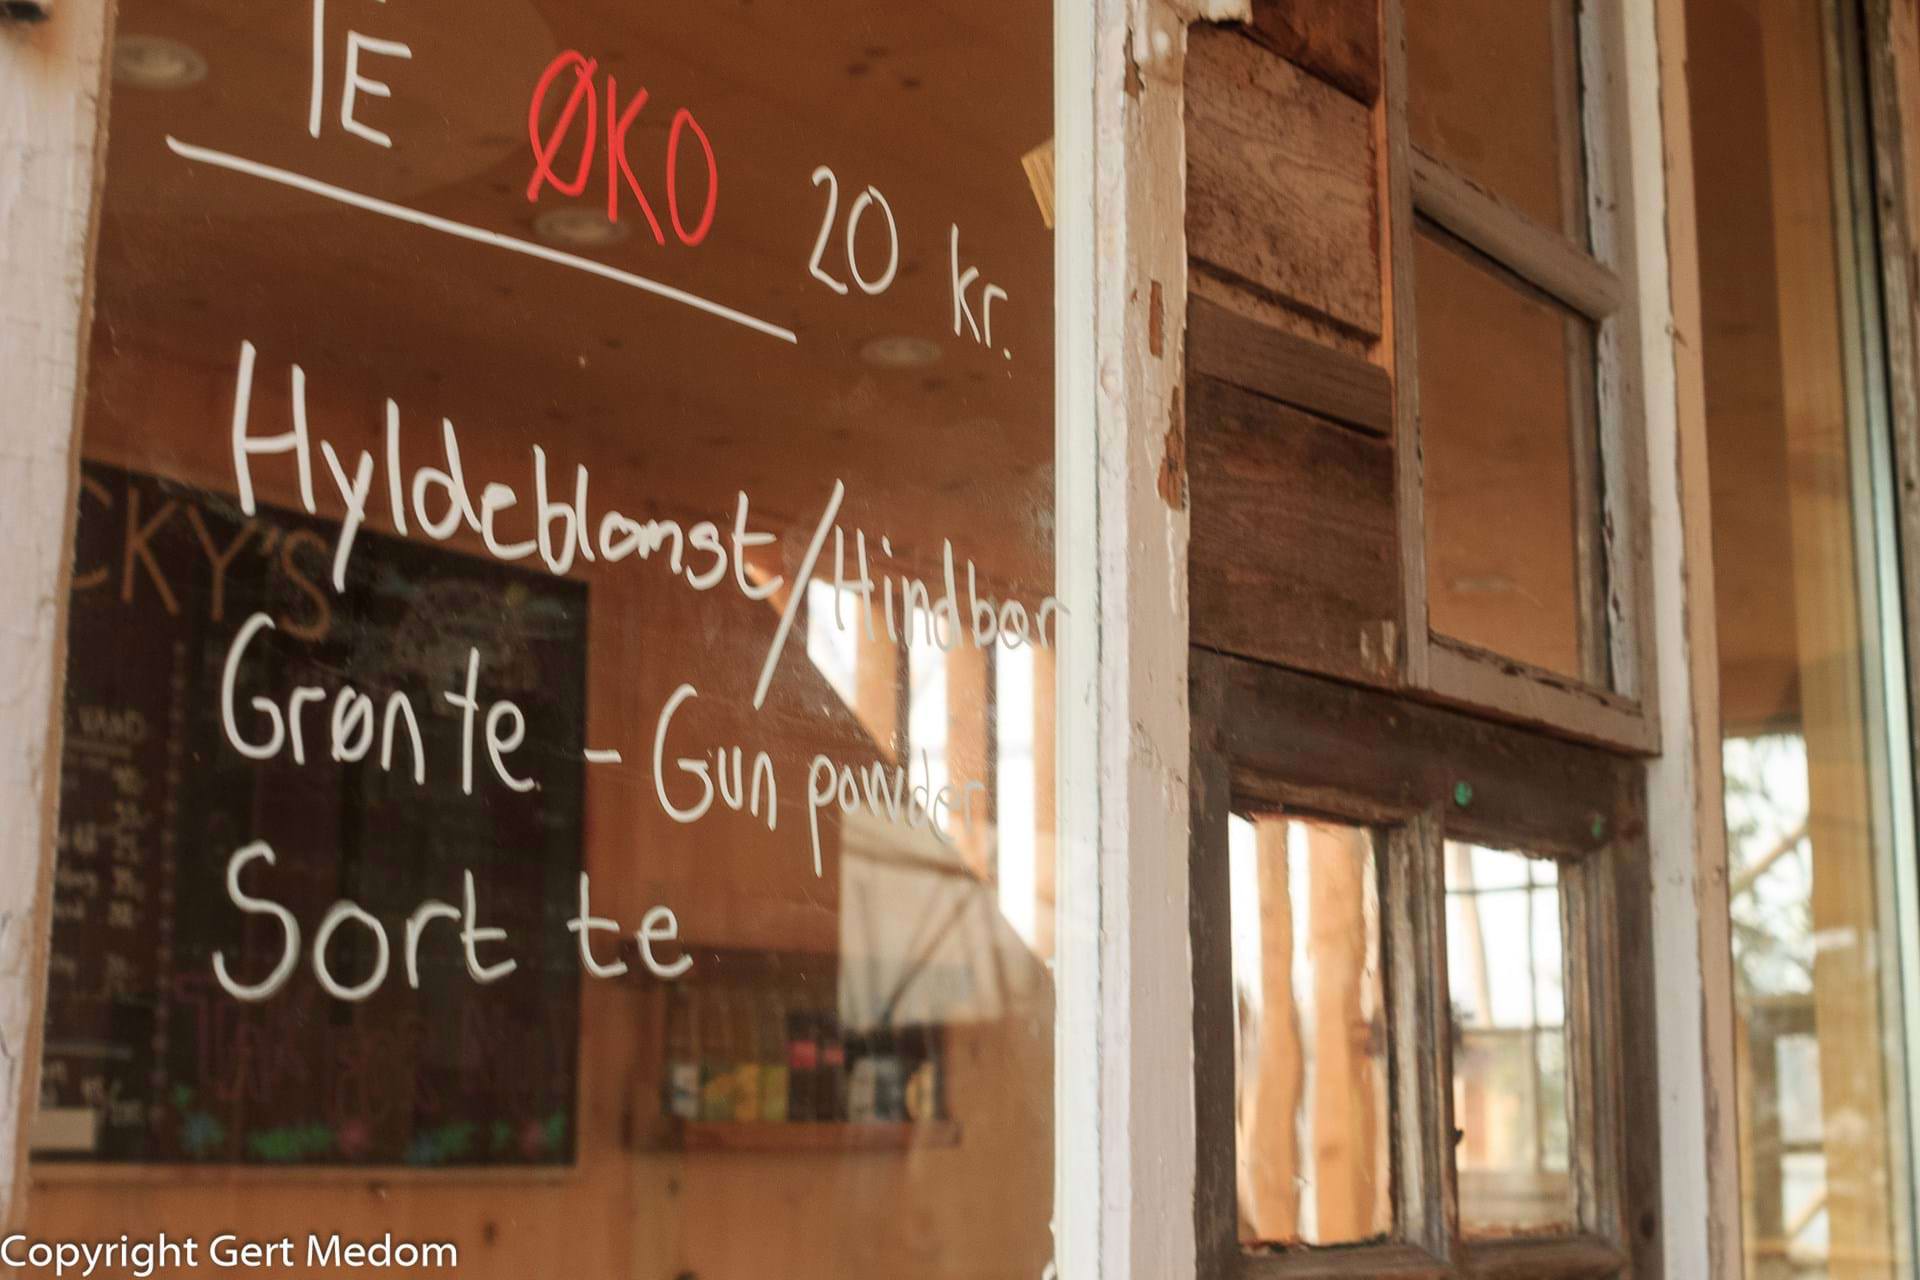 TE ØKO 20 kr.
Hyldeblomst/Hindbær
Grøn te - Gun powder
Sort te
CKY'S
Copyright Gert Medom